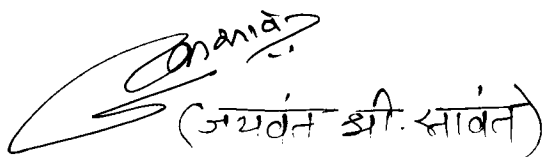 (जयवंत श्री. सावंत)